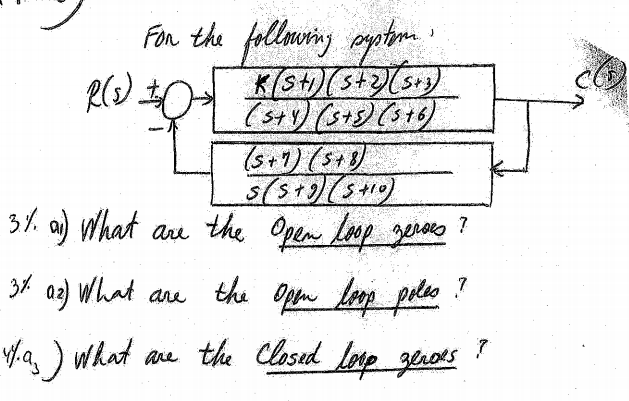 For the following system.
R(s) + K(s+1)(s+2)(s+3) C(s)
(s+4)(s+5)(s+6)
-
(s+7)(s+8)
s(s+9)(s+10)
3%. a1) What are the Open loop zeroes ?
3%. a2) What are the Open loop poles ?
4%. a3) What are the Closed loop zeroes ?